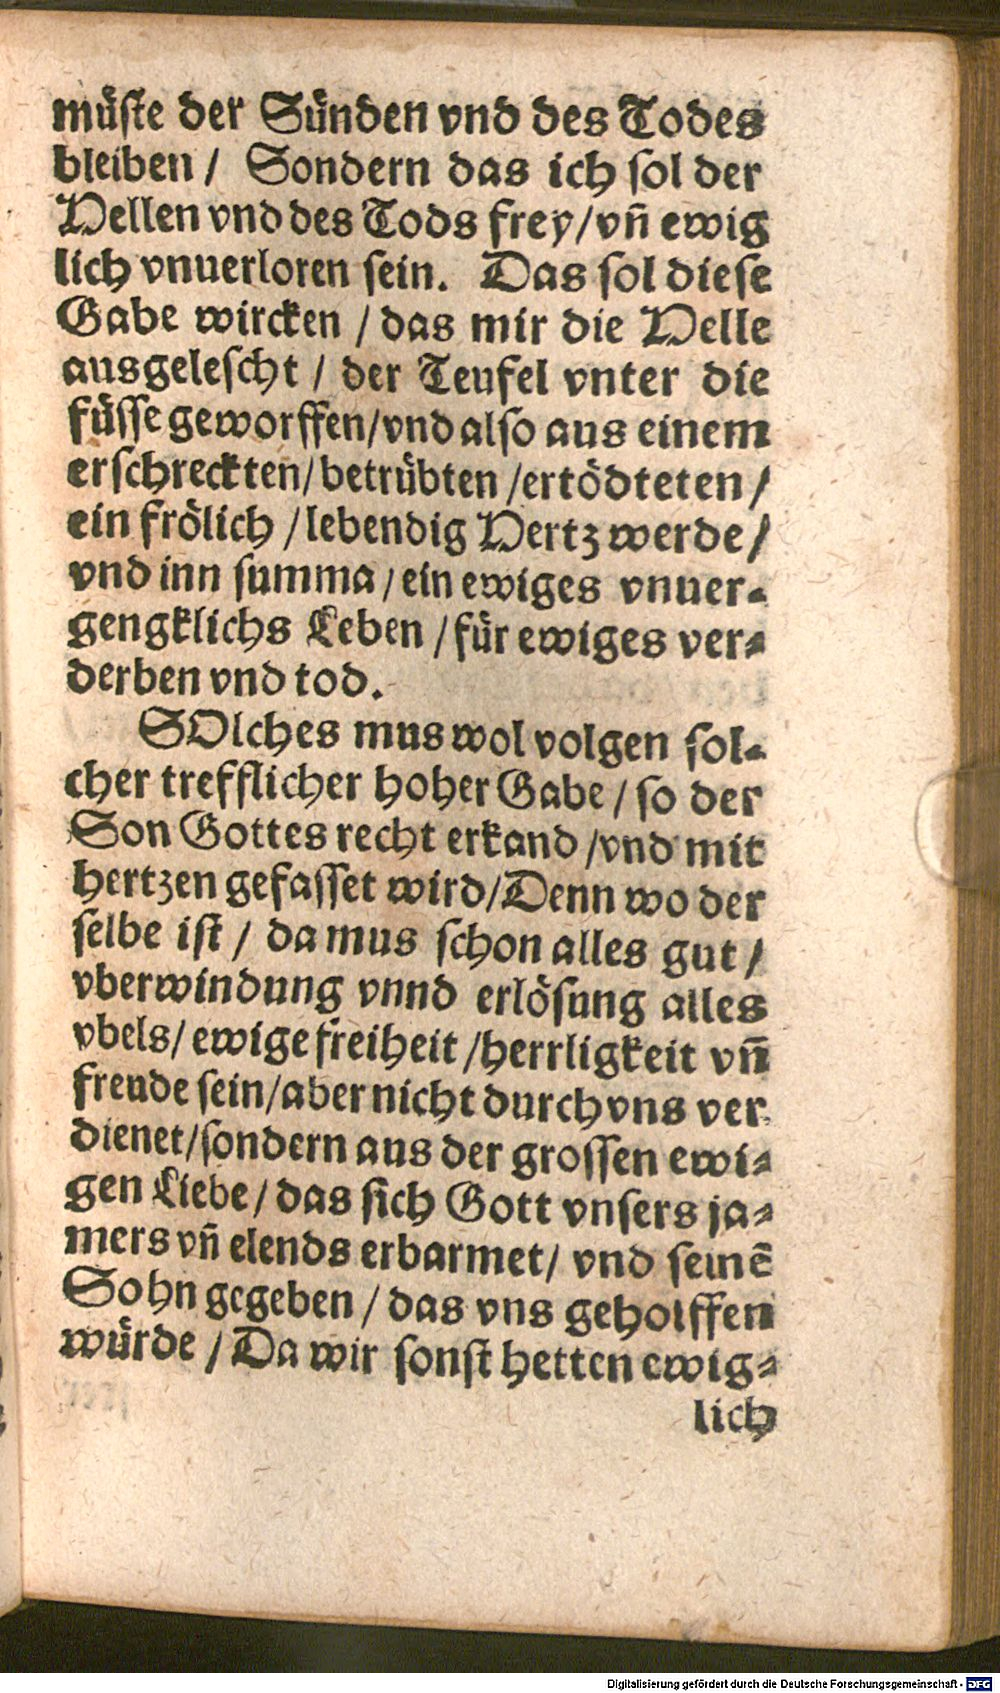 müſte der Sünden vnd des Todes
bleiben / Sondern das ich ſol der
Hellen vnd des Tods frey / vn̄ ewig
lich vnuerloren ſein. Das ſol dieſe
Gabe wircken / das mir die Helle
ausgeleſcht / der Teufel vnter die
füſſe geworffen / vnd alſo aus einem
erſchreckten / betrübten / ertödteten /
ein frölich / lebendig Hertz werde /
vnd inn ſumma / ein ewiges vnuer⸗
gengklichs Leben / für ewiges ver⸗
derben vnd tod.
SOlches mus wol volgen ſol⸗
cher trefflicher hoher Gabe / ſo der
Son Gottes recht erkand / vnd mit
hertzen gefaſſet wird / Denn wo der
ſelbe iſt / da mus ſchon alles gut /
vberwindung vnnd erlöſung alles
vbels / ewige freiheit / herrligkeit vn̄
freude ſein / aber nicht durch vns ver
dienet / ſondern aus der groſſen ewi⸗
gen Liebe / das ſich Gott vnſers ja⸗
mers vn̄ elends erbarmet / vnd ſeinē
Sohn gegeben / das vns geholffen
würde / Da wir ſonſt hetten ewig⸗
lich
Digitalisierung gefördert durch die Deutsche Forschungsgemeinschaft - DFG